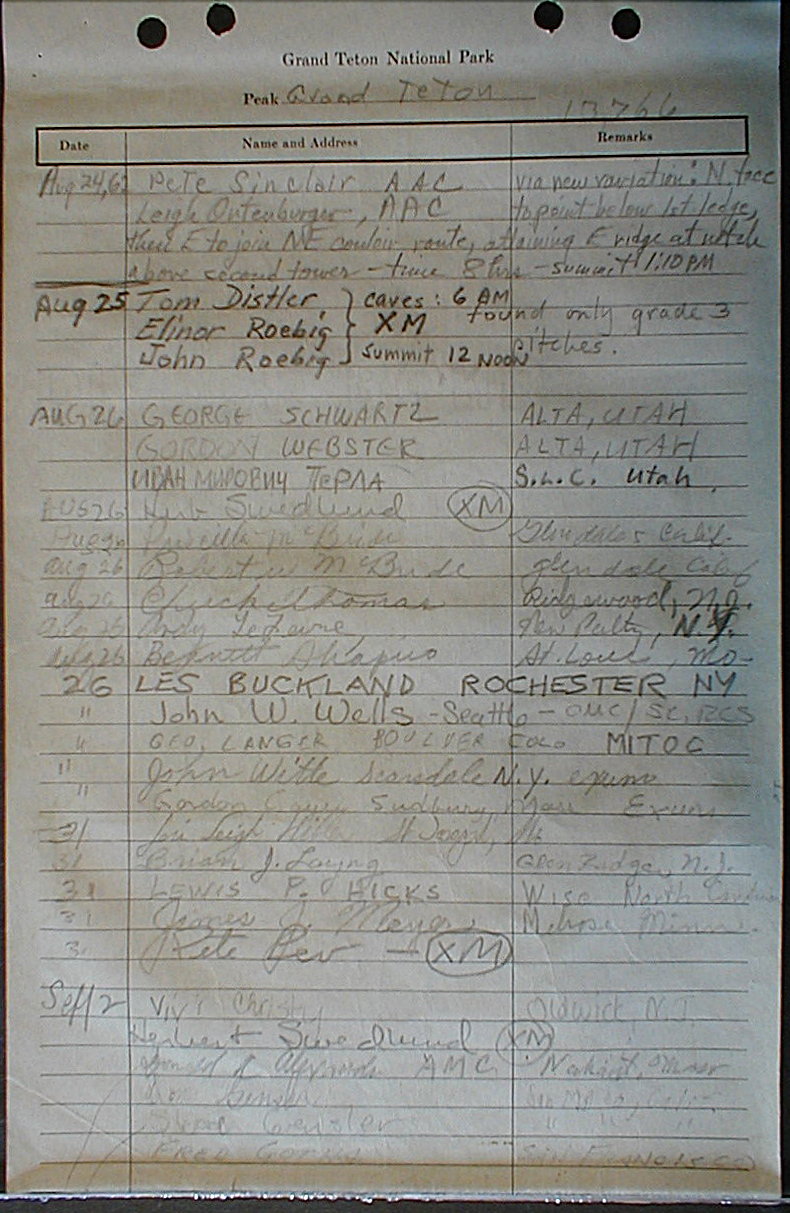 Grand Teton National Park
Peak Grand Teton 13766
Date Name and Address Remarks
Aug 24, Pete Sinclair AAC via new variation: N. face
Leigh Ortenburger, AAC to point below 1st ledge,
then E to join NE couloir route, attaining E ridge at notch
above second tower - time 8 hrs - summit 1:10 PM
Aug 25 Tom Distler caves: 6 AM found only grade 3
Elinor Roebig XM pitches.
John Roebig summit 12 NOON
AUG 26 GEORGE SCHWARTZ ALTA, UTAH
GORDON WEBSTER ALTA, UTAH
ИВАН МИРОВИЧ ПЕРЛА S.L.C. Utah.
AUG 26 Herb Swedlund XM
Aug 26 Priscilla McBride Glendale, Calif.
Aug 26 Robert McBride Glendale Calif
Aug 26 Thomas Ridgewood, N.J.
Aug 26 Andy LeFevre New Paltz, N.Y.
Aug 26 Bennett Shapiro St. Louis, Mo.
26 LES BUCKLAND ROCHESTER NY
" John W. Wells - Seattle -
" GEO. LANGER BOULDER COLO MITOC
" John Witte Scarsdale N.Y. exum
" Gordon Sudbury, Mass Exum
31 Leigh St Joseph,
31 Brian J. Laying Glen Ridge, N.J.
31 LEWIS P. HICKS Wise North Carolina
31 James J. Meyer Melrose Minn.
31 Pete Lev - XM
Sept 2 Christy Oldwick, N.J.
Herbert Swedlund XM
AMC Mass
FRED SAN FRANCISCO